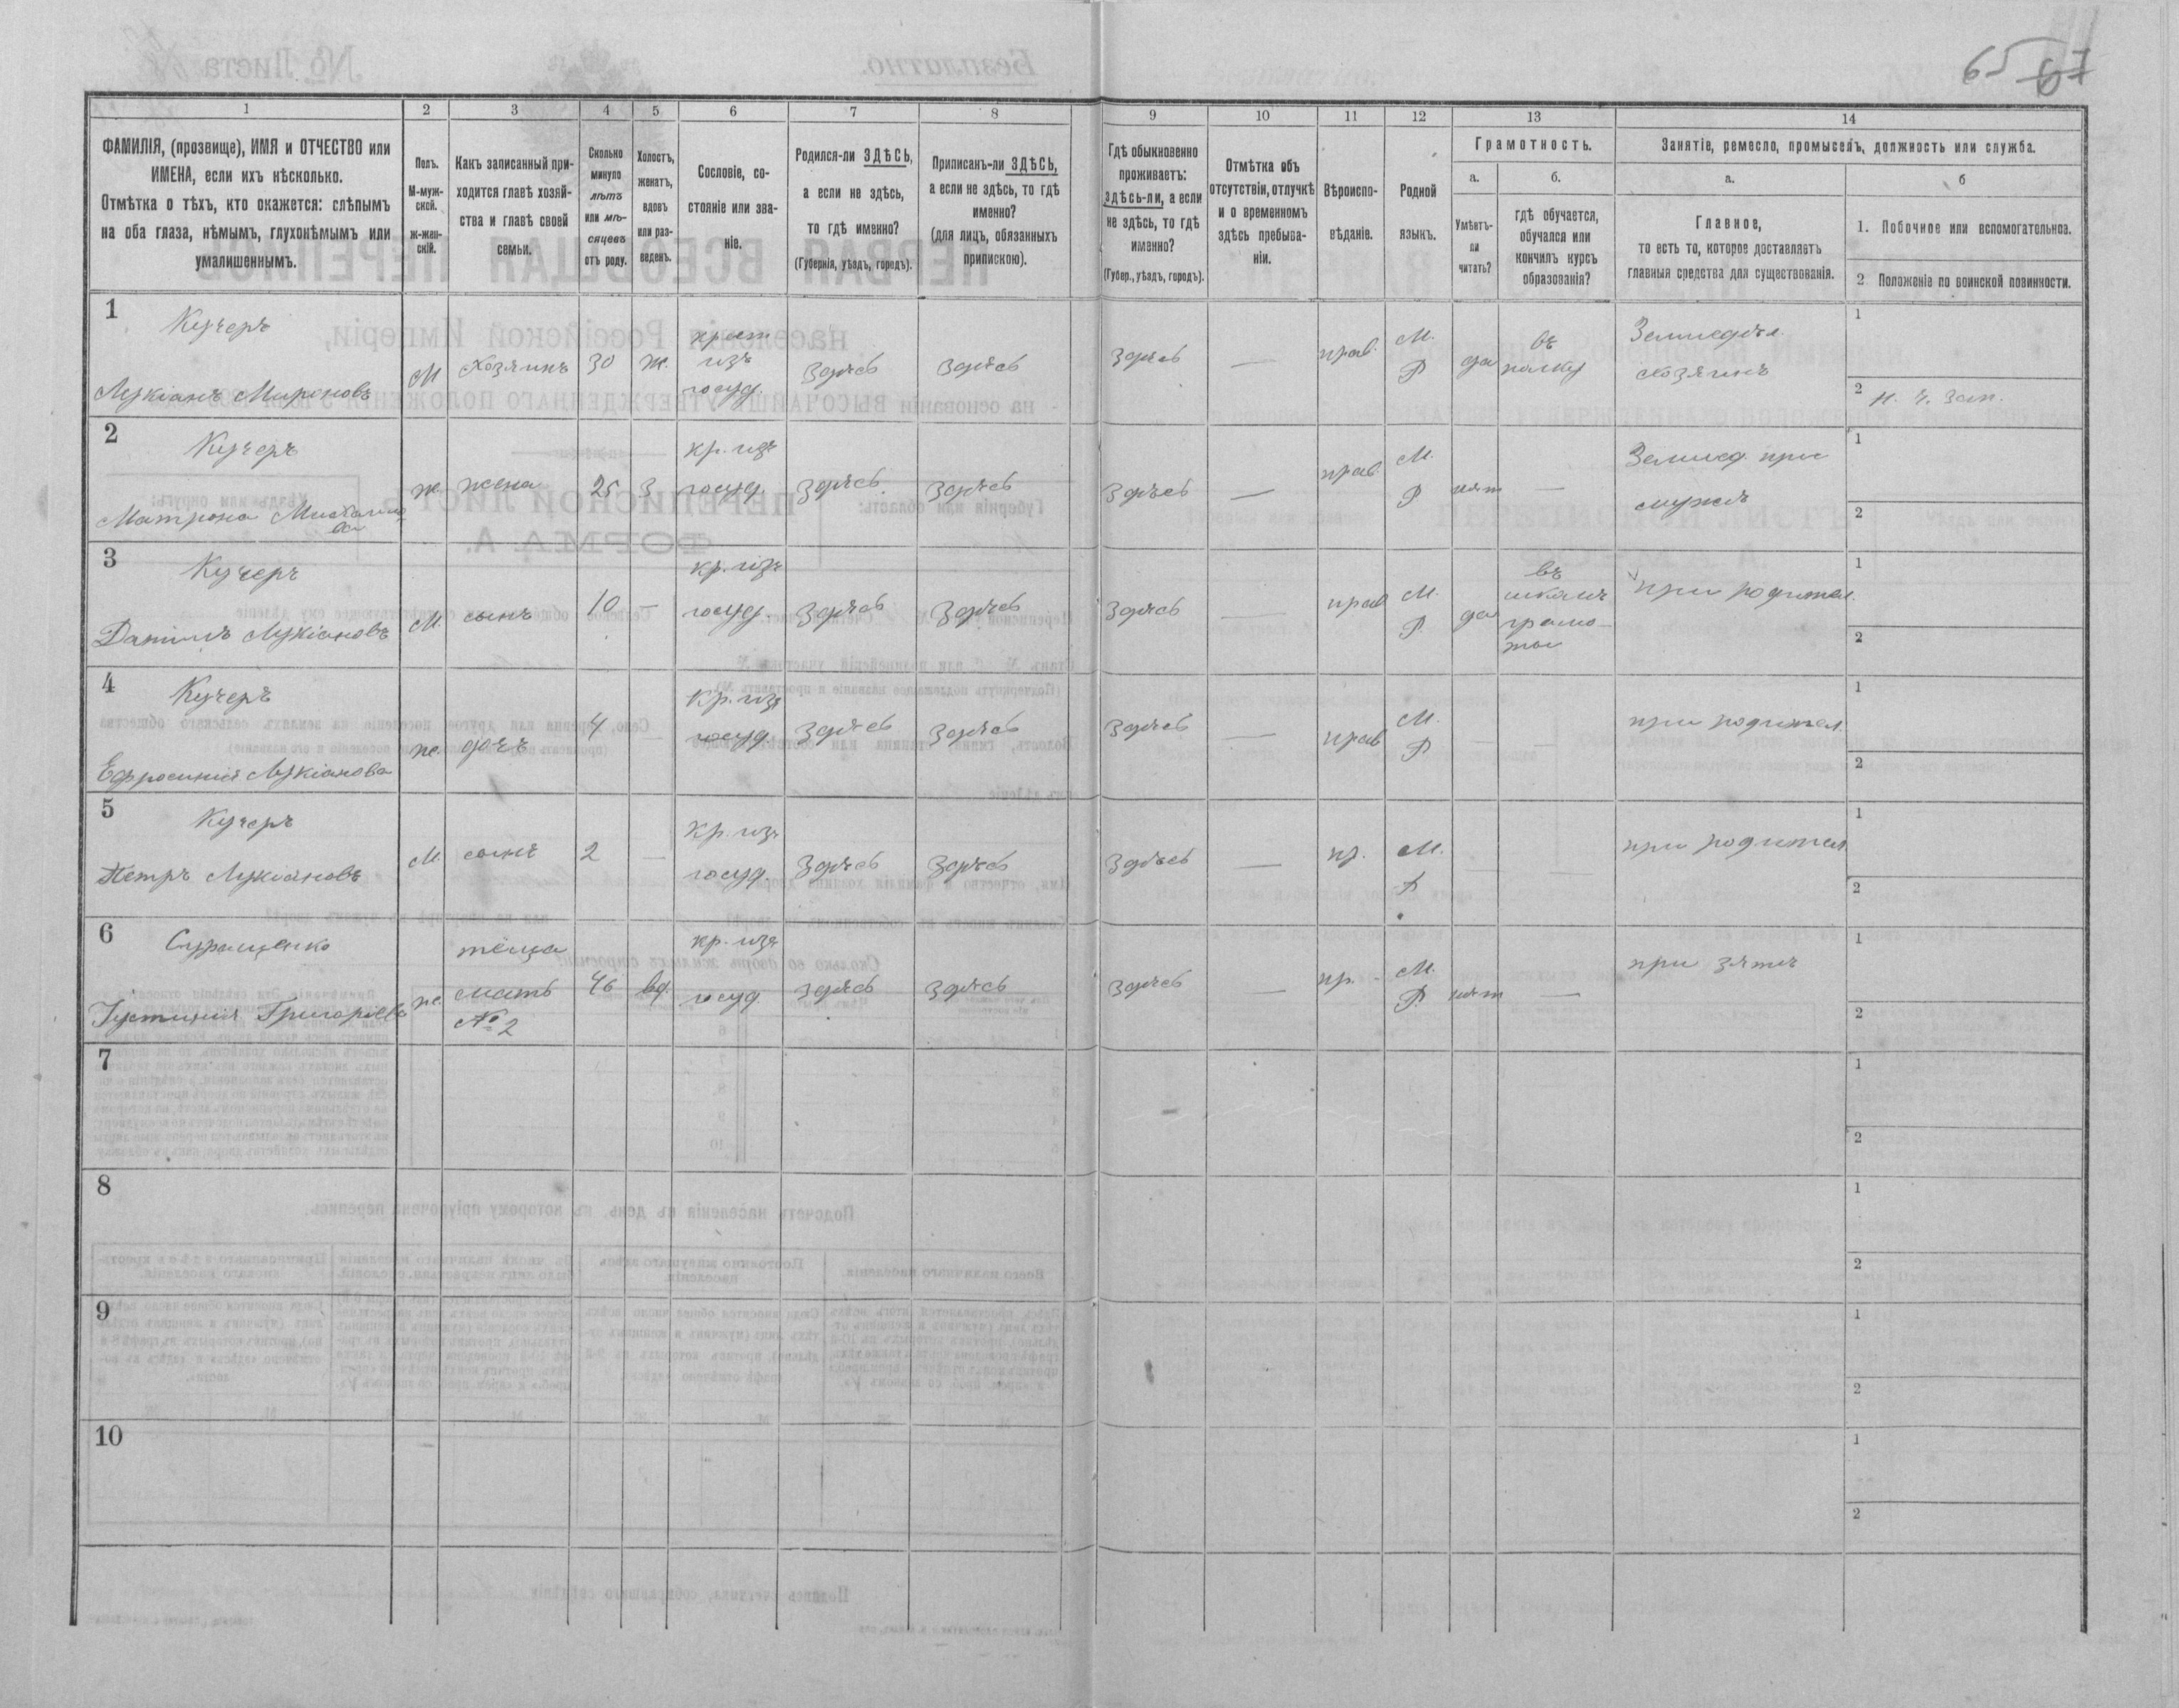 65 67
1 2 3 4 5 6 7 8 9 10 11 12 13 14
ФАМИЛІЯ, (прозвище), ИМЯ и ОТЧЕСТВО или
ИМЕНА, если ихъ нѣсколько.
Отмѣтка о тѣхъ, кто окажется: слѣпымъ
на оба глаза, нѣмымъ, глухонѣмымъ или
умалишеннымъ.
Полъ.
М-муж-
ской.
ж-жен-
скій.
Какъ записанный при-
ходится главѣ хозяй-
ства и главѣ своей
семьи.
Сколько
минуло
лѣтъ
или мѣ-
сяцевъ
отъ роду.
Холостъ,
женатъ,
вдовъ
или раз-
веденъ.
Сословіе, со-
стояніе или зва-
ніе.
Родился-ли ЗДѢСЬ,
а если не здѣсь,
то гдѣ именно?
(Губернія, уѣздъ, городъ).
Приписанъ-ли ЗДѢСЬ,
а если не здѣсь, то гдѣ
именно?
(для лицъ, обязанныхъ
припискою).
Гдѣ обыкновенно
проживаетъ:
здѣсь-ли, а если
не здѣсь, то гдѣ
именно?
(Губер., уѣздъ, городъ).
Отмѣтка объ
отсутствіи, отлучкѣ
и о временномъ
здѣсь пребыва-
ніи.
Вѣроиспо-
вѣданіе.
Родной
языкъ.
Грамотность.
а.
Умѣетъ-
ли
читать?
б.
гдѣ обучается,
обучался или
кончилъ курсъ
образованія?
Занятіе, ремесло, промыселъ, должность или служба.
а.
Главное,
то есть то, которое доставляетъ
главныя средства для существованія.
б
1. Побочное или вспомогательное.
2 Положеніе по воинской повинности.
1
Кучеръ
Лукіанъ Мироновъ
М
Хозяинъ
30
ж.
крест
изъ
госуд.
Здѣсь
Здѣсь
Здѣсь
—
прав.
М.
Р
да
въ
полку
Земледѣл.
хозяинъ
1
2 н. ч. зап.
2
Кучеръ
Матрона
ж.
жена
25
З
кр. изъ
госуд
Здѣсь
Здѣсь
Здѣсь
—
прав.
М.
Р
нѣт
—
Землед. при
мужѣ
1
2
3
Кучеръ
Даніилъ Лукіановъ
М.
сынъ
10
—
кр. изъ
госуд.
Здѣсь
Здѣсь
Здѣсь
—
прав
М.
Р.
да
въ
школѣ
грамо-
ты
при родител.
1
2
4
Кучеръ
Ефросинія Лукіанова
ж.
дочь
4
—
Кр. изъ
госуд
Здѣсь
Здѣсь
Здѣсь
—
прав
М.
Р
—
—
при родител.
1
2
5
Кучеръ
Петръ Лукіановъ
М.
сынъ
2
—
Кр. изъ
госуд.
Здѣсь
Здѣсь
Здѣсь
—
пр.
М.
Р
—
—
при родител
1
2
6
Іустинія Григорьева
ж.
тёща
мать
№ 2
46
вд.
кр. изъ
госуд.
здѣсь
Здѣсь
Здѣсь
—
пр.
М.
Р.
нѣт
—
при зятѣ
1
2
7
1
2
8
1
2
9
1
2
10
1
2